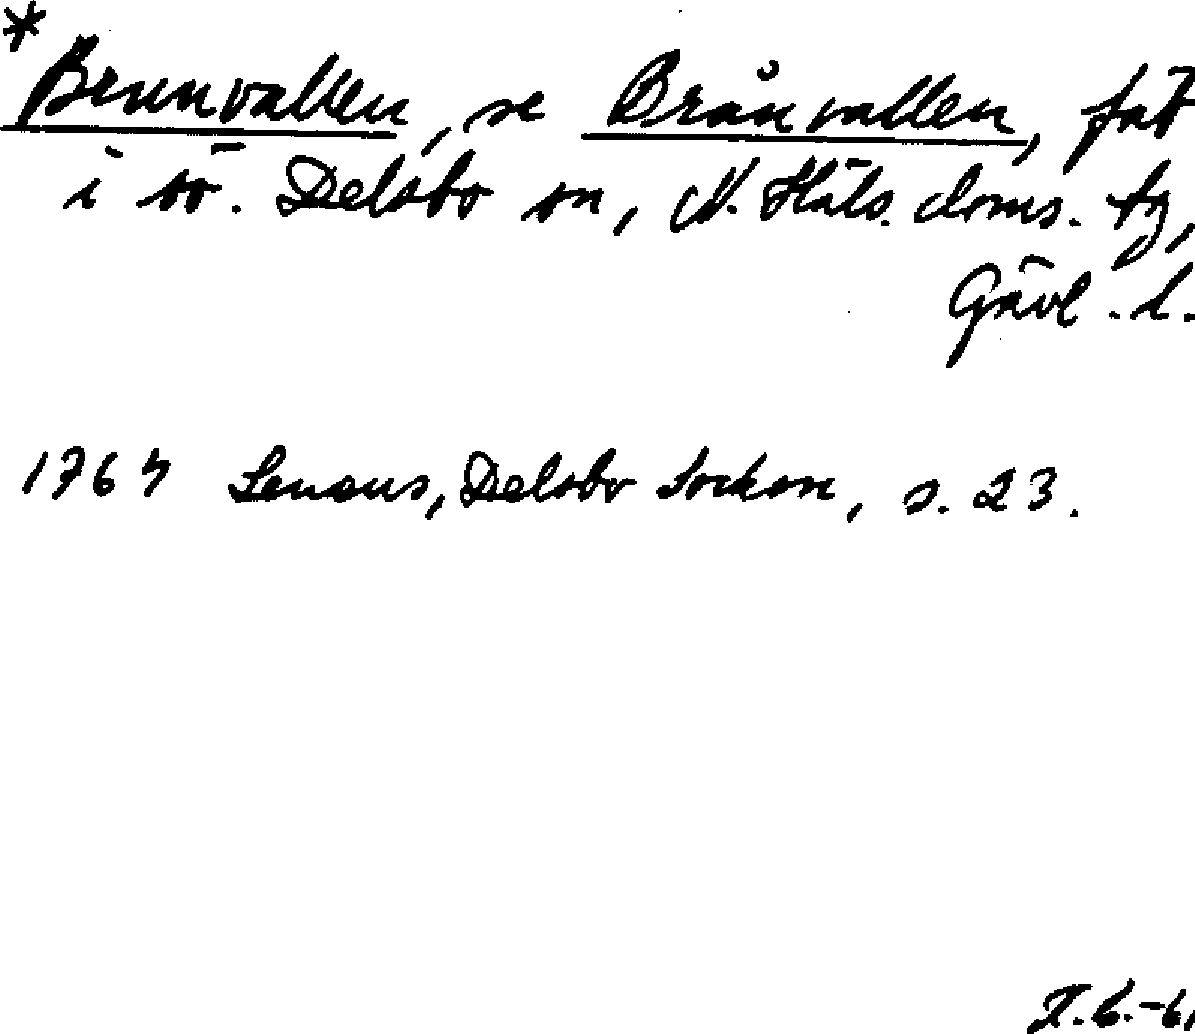 * Brunvallen, se Brånvallen, fäb
i sö. Delsbo sn, N. Häls. doms. tg,
Gävl. l.
1764 Lenæus, Delsbo Socken, s. 23.